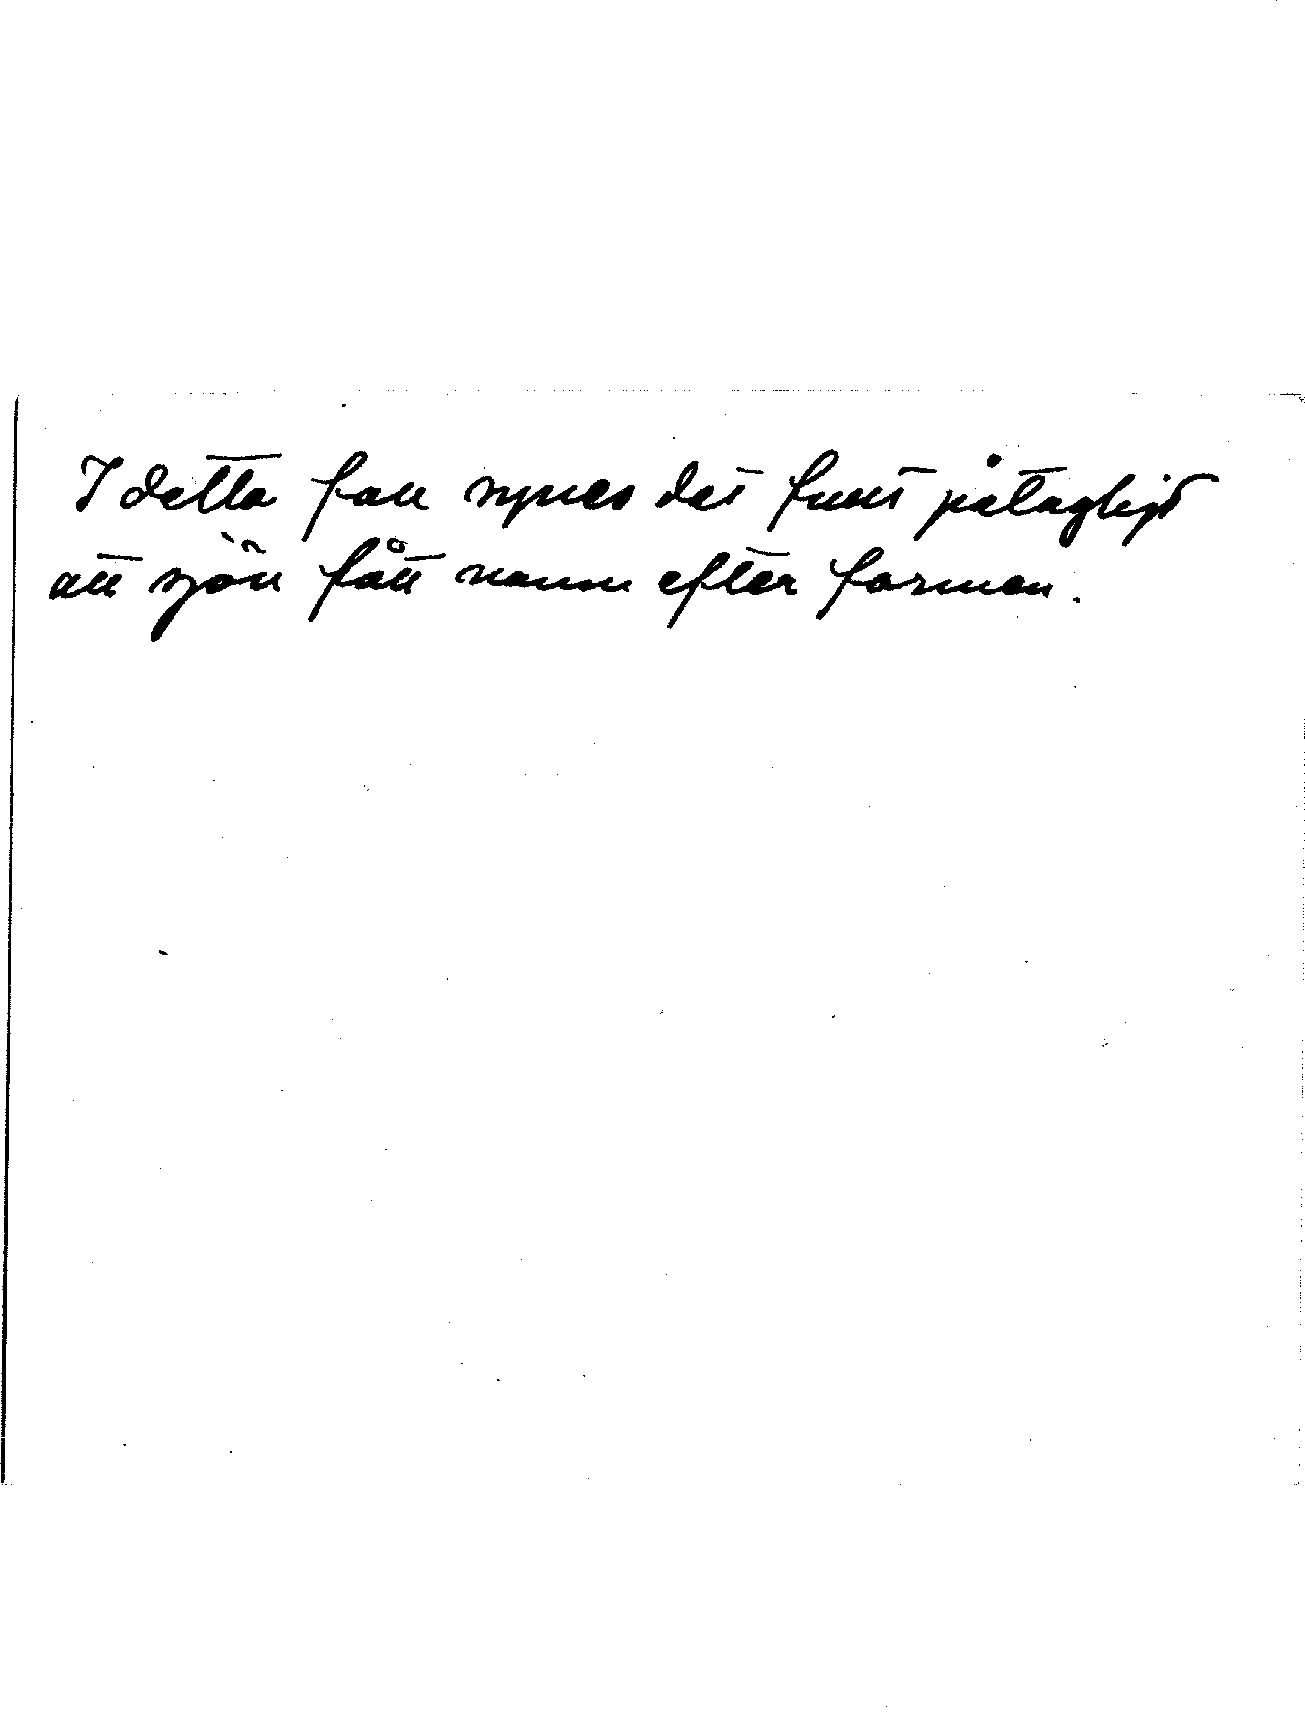 I detta fall synes det fullt påtagligt
att sjön fått namn efter formen.